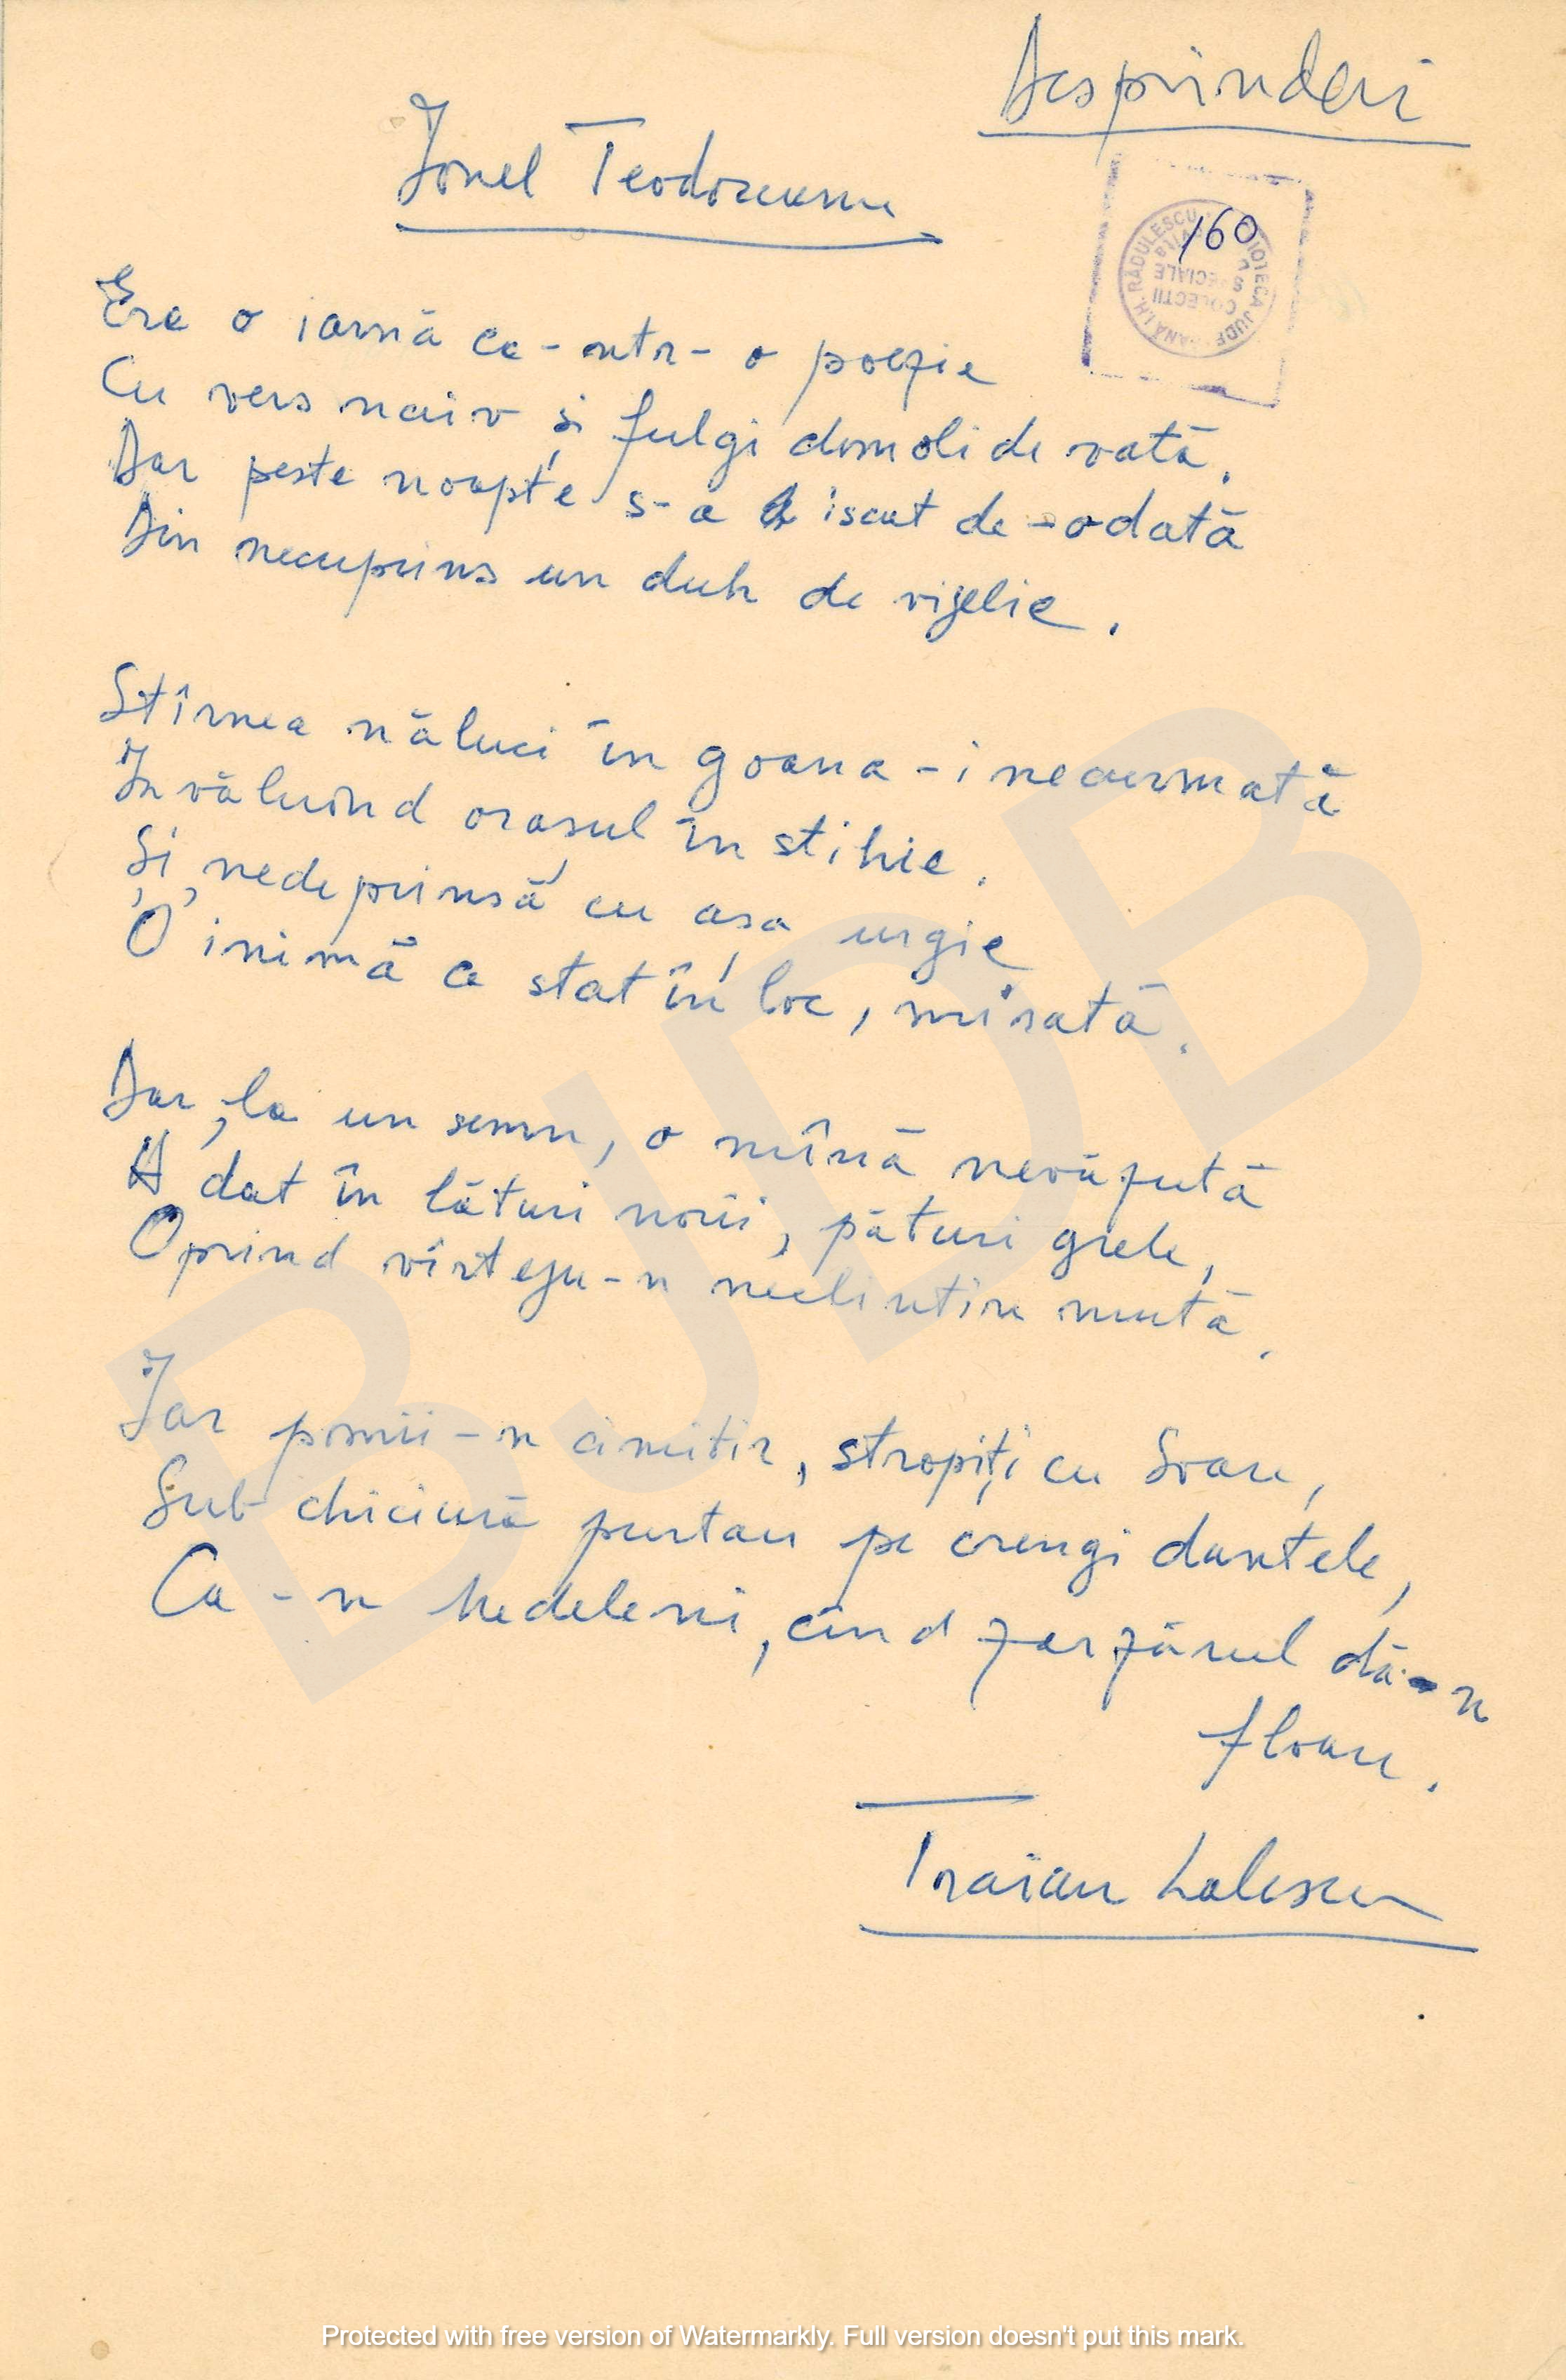 Desprinderi
Ionel Teodoreanu
160
Era o iarnă ca-ntr-o poezie
Cu vers naiv și fulgi domoli de vată.
Dar peste noapte s-a iscat de-odată
Din necuprins un duh de vijelie.
Stîrnea năluci în goana-i neaurmată
Învăluind orașul în stihie.
Și, nedeprinsă cu așa urgie
O inimă a stat în loc, mirată.
Dar, la un semn, o mînă nevăzută
A dat în lături norii, pături grele,
Oprind vîrteju-n neclintire mută.
Iar pomii-n cimitir, stropiți cu Soare,
Sub chiciură purtau pe crengi dantele,
Ca-n Medeleni, cînd zarzărul dă-n
floare.
Traian Lalescu
BJDB
Protected with free version of Watermarkly. Full version doesn't put this mark.